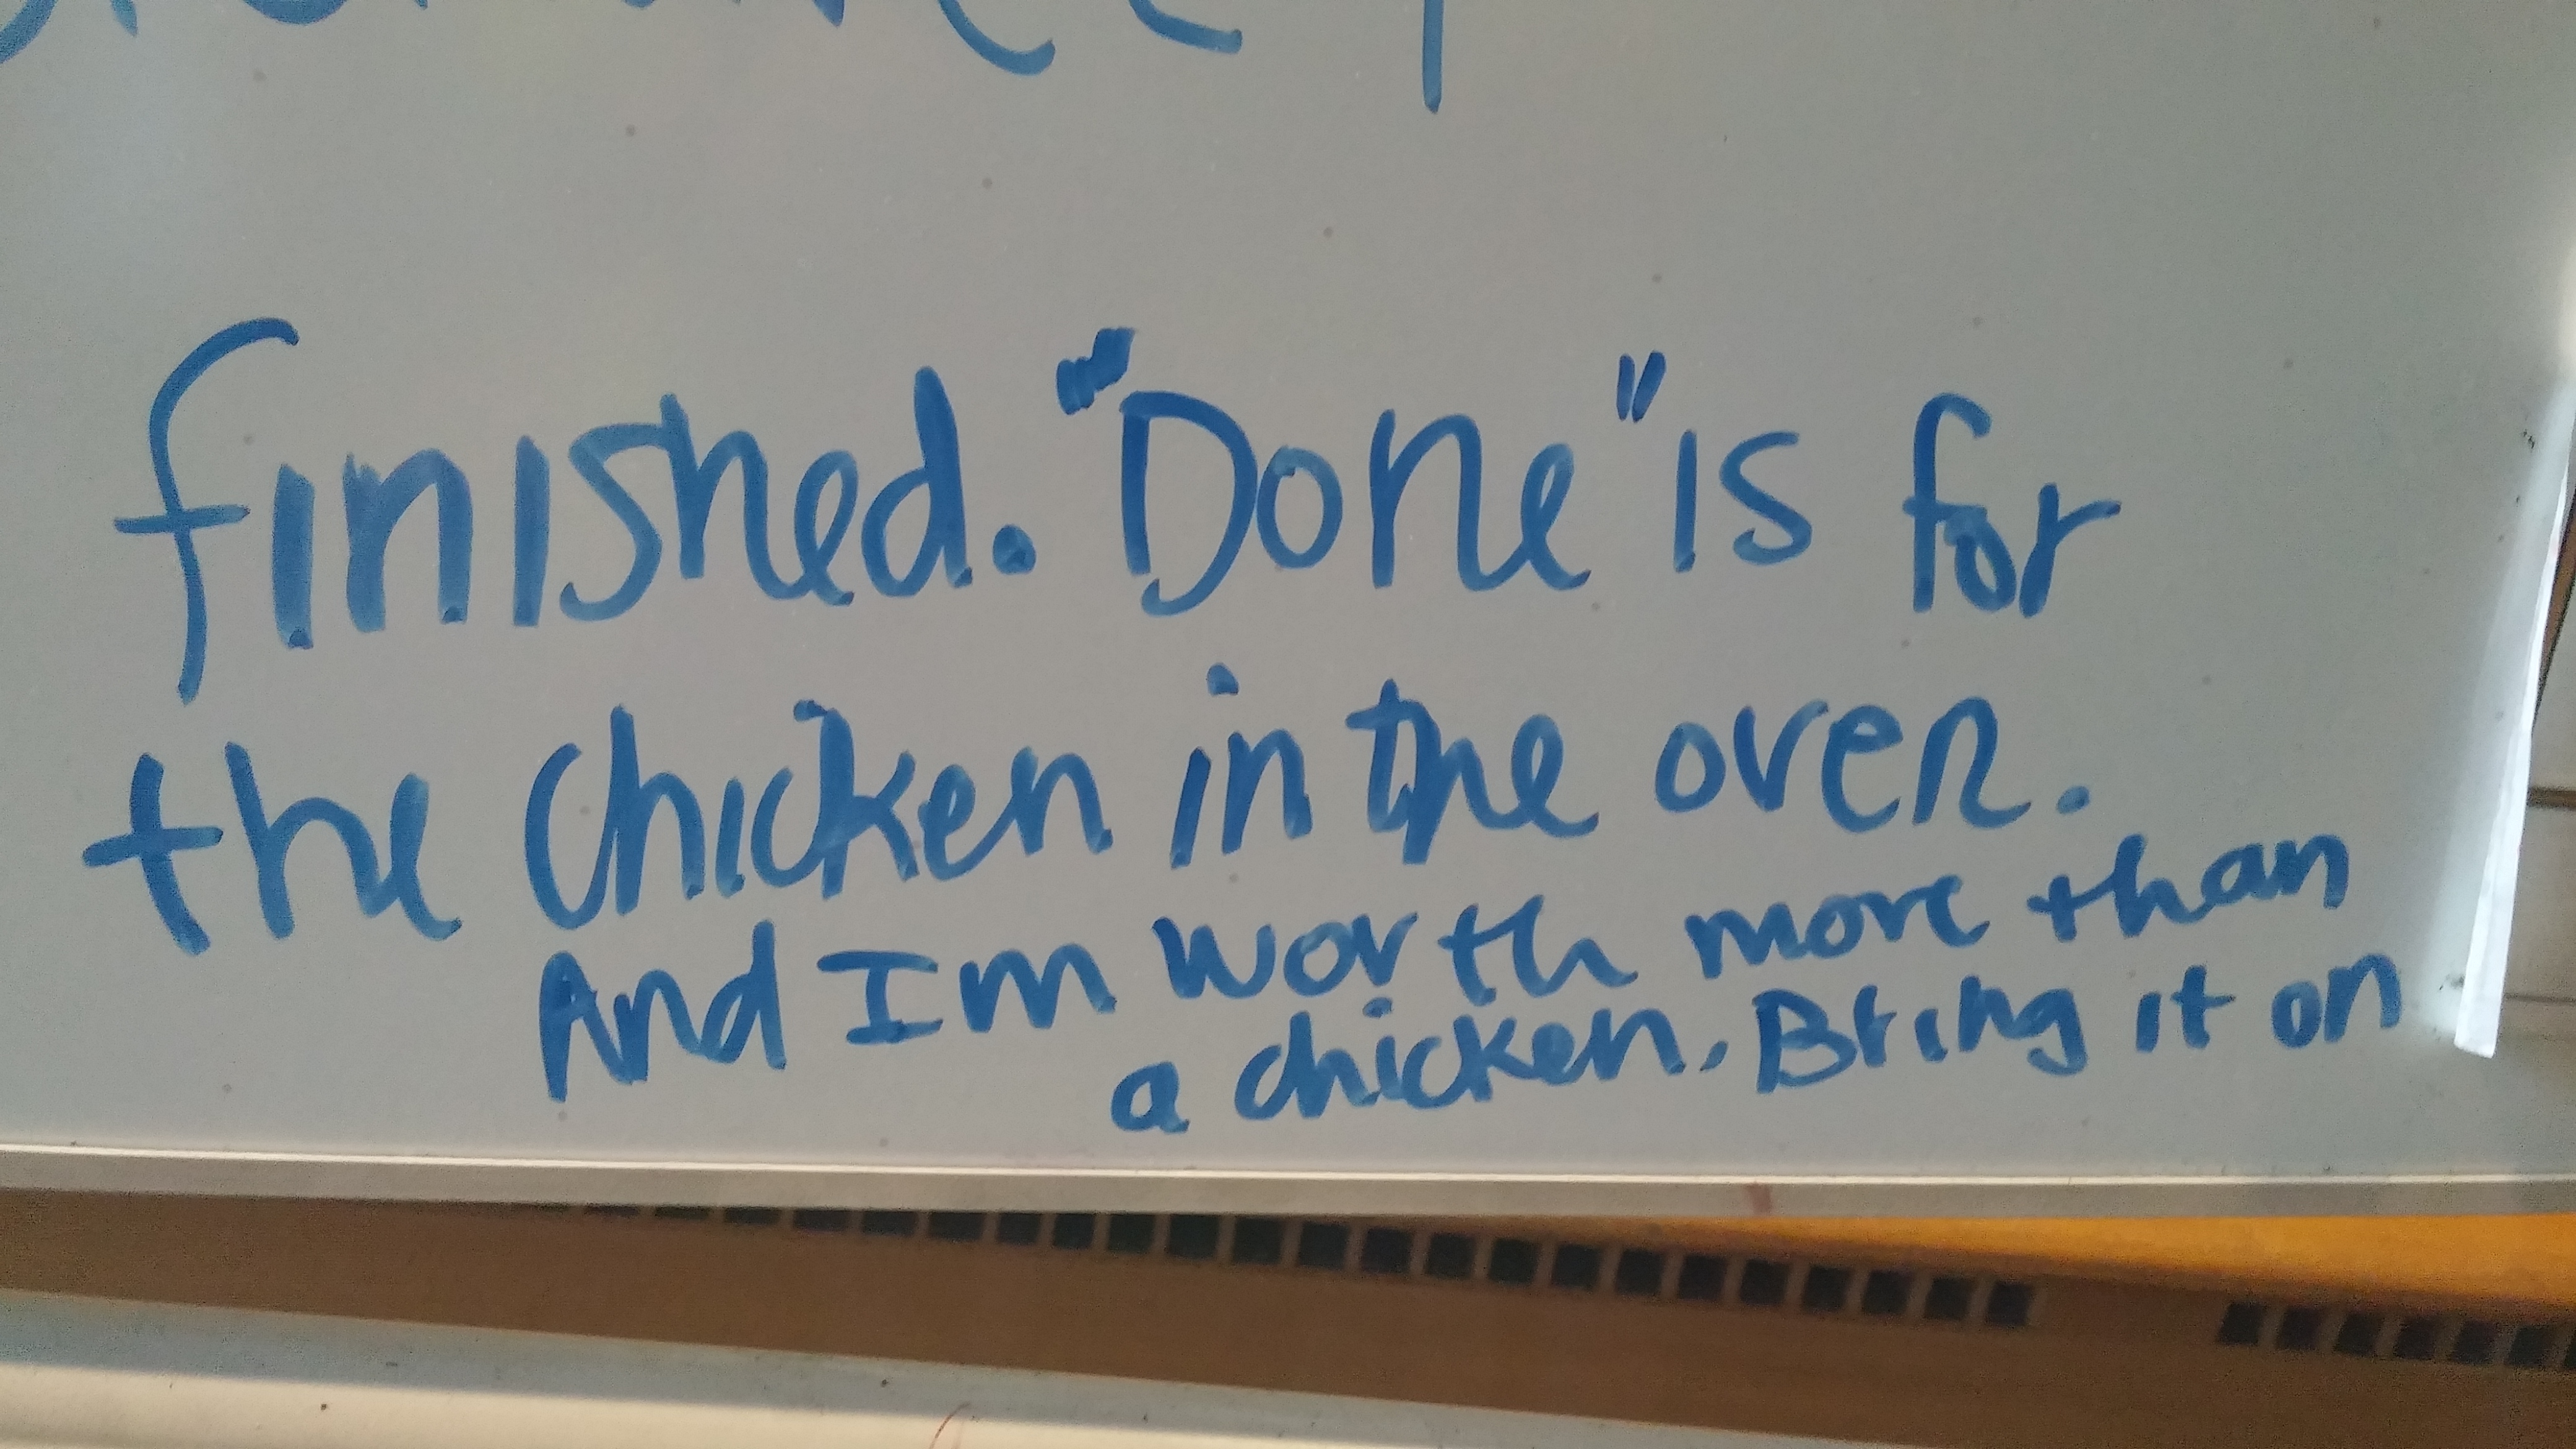 finished. "Done" is for
the chicken in the oven.
And Im worth more than
a chicken. Bring it on